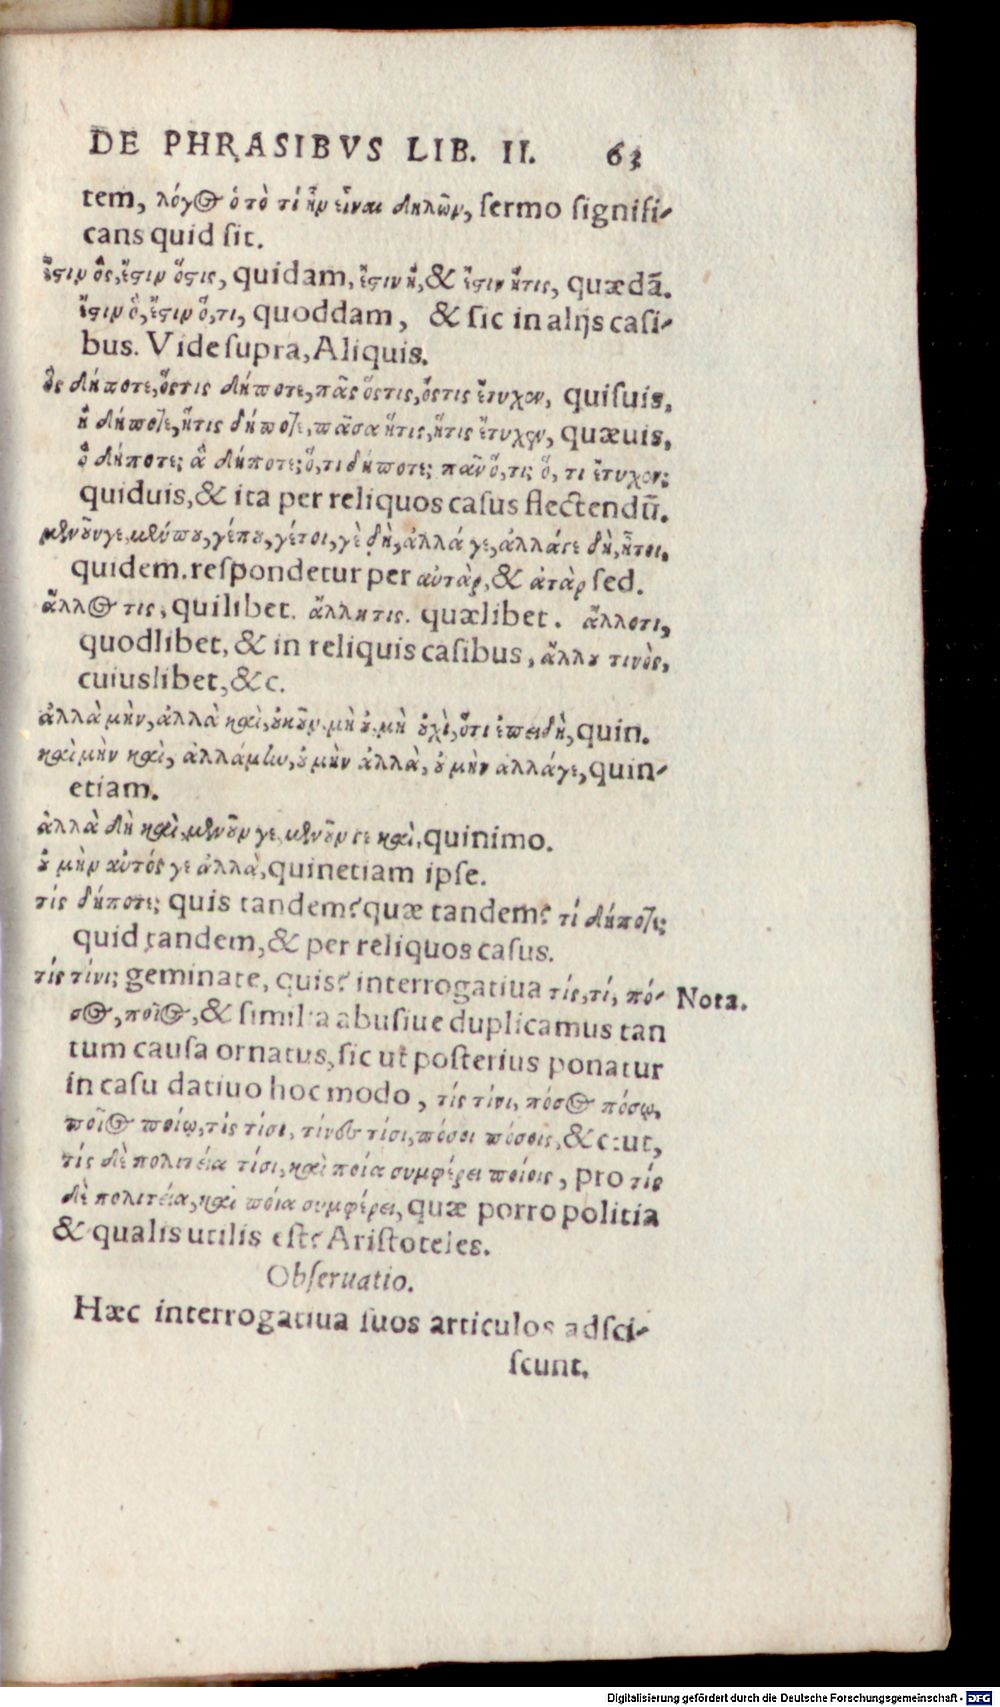 DE PHRASIBVS LIB. II. 63
tem, λόγος ὁ τὸ τί ἦν εἶναι δηλῶν, sermo signifi-
cans quid sit.
ἔστιν ὃς, ἔστιν ὅστις, quidam, ἔστιν ἣ, & ἔστιν ἥτις, quædā.
ἔστιν ὃ, ἔστιν ὅ, τι, quoddam, & sic in alijs casi-
bus. Vide supra, Aliquis.
ὃς δήποτε, ὅςτις δήποτε, πᾶς ὅςτις, ὅςτις ἔτυχον, quisuis,
ἣ δήποτε, ἥτις δήποτε, πᾶσα ἥτις, ἥτις ἔτυχον, quæuis,
ὃ δήποτε; ἃ δήποτε; ὅ, τι δήποτε; πᾶν ὅ, τι; ὅ, τι ἔτυχον;
quiduis, & ita per reliquos casus flectendū.
μενοῦνγε, γέπου, γέτοι, γὲ δὴ, ἀλλά γε, ἀλλάγε δὴ, ἤτοι,
quidem. respondetur per αὐτὰρ, & ἀτὰρ sed.
ἄλλος τις, quilibet. ἄλλητις. quælibet. ἄλλοτι,
quodlibet, & in reliquis casibus, ἄλλου τινὸς,
cuiuslibet, &c.
ἀλλὰ μὴν, ἀλλὰ καὶ, οὐκοῦν. μὴ οὐ. μὴ οὐχὶ, ὅτι ἐπειδὴ, quin.
καὶ μὴν καὶ, ἀλλάμην, οὐ μὴν ἀλλὰ, οὐ μὴν ἀλλάγε, quin-
etiam.
ἀλλὰ δὴ καὶ, μενοῦν γε, μενοῦν γε καὶ, quinimo.
οὐ μὴν αὐτός γε ἀλλὰ, quinetiam ipse.
τίς δήποτε; quis tandem? quæ tandem? τί δήποτε;
quid tandem, & per reliquos casus.
τίς τίνι; geminate, quis? interrogatiua τίς, τί, πό- Nota.
σος, ποῖος, & similia abusiue duplicamus tan
tum causa ornatus, sic ut posterius ponatur
in casu datiuo hoc modo, τίς τίνι, πόσος πόσῳ,
ποῖος ποίῳ, τὶς τίσι, τίνες τίσι, πόσοι πόσοις, &c: ut,
τίς δὲ πολιτεία τίσι, καὶ ποία συμφέρει ποίοις, pro τίς
δὲ πολιτεία, καὶ ποία συμφέρει, quæ porro politia
& qualis utilis est? Aristoteles.
Obseruatio.
Hæc interrogatiua suos articulos adsci-
scunt.
Digitalisierung gefördert durch die Deutsche Forschungsgemeinschaft - DFG